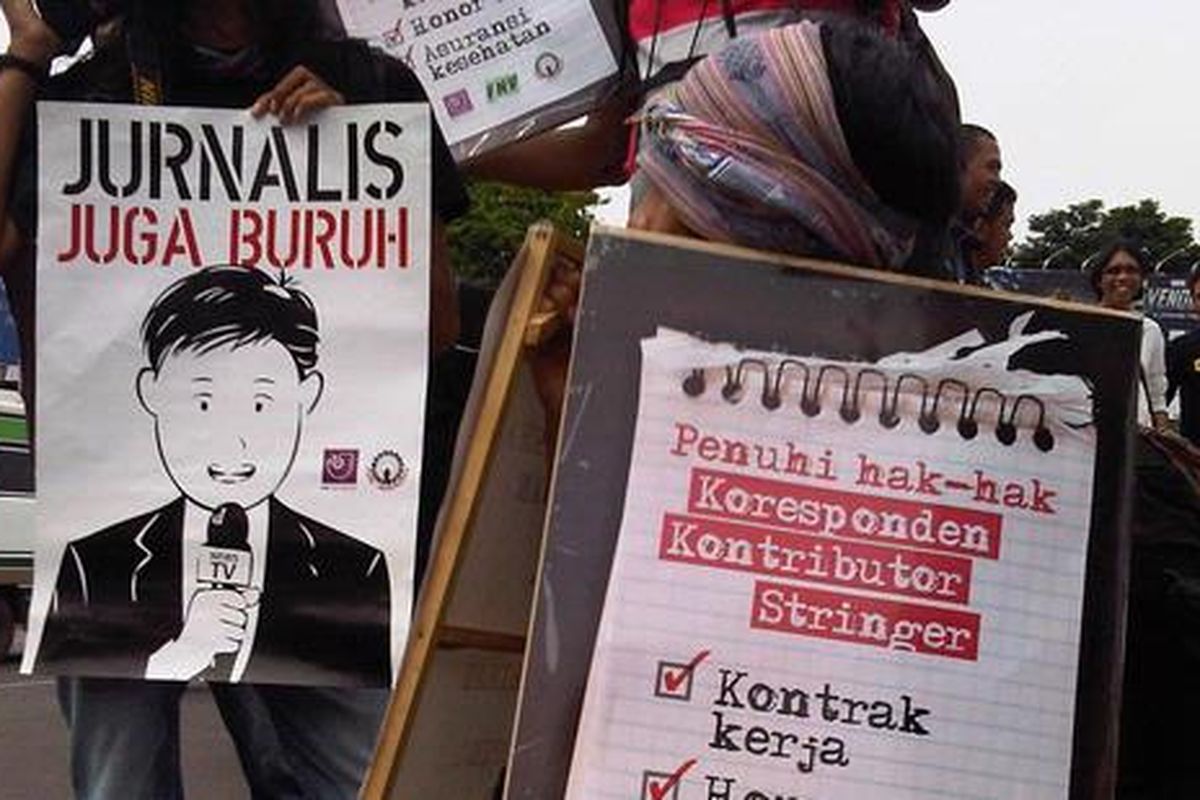 JURNALIS
JUGA BURUH
TV
Honor
Asuransi
kesehatan
FNV
Penuhi hak-hak
Koresponden
Kontributor
Stringer
Kontrak
kerja